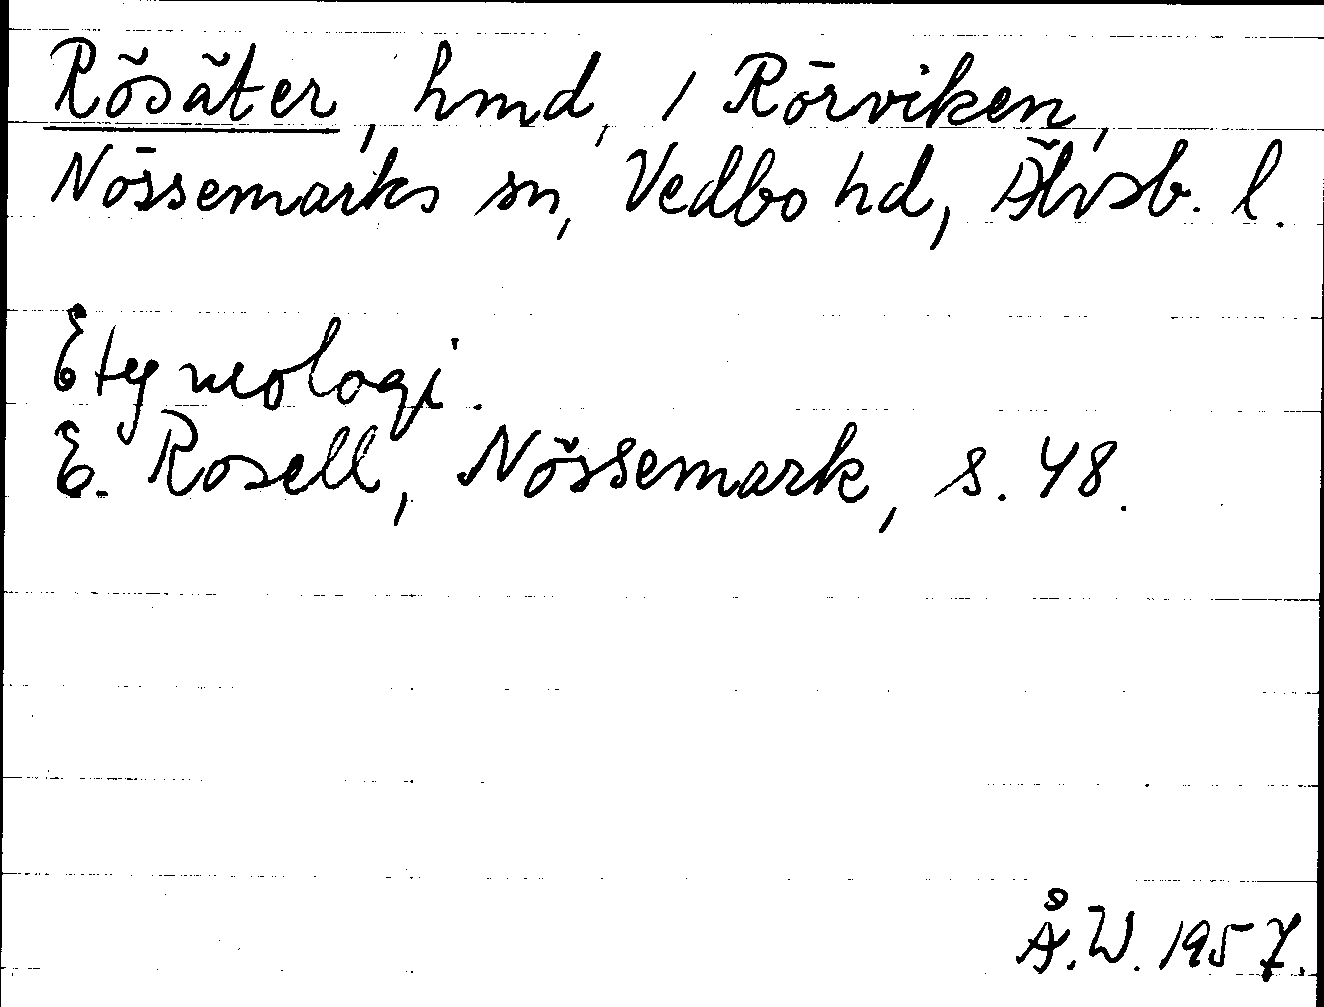 Rösäter, hmd, / Rörviken,
Nössemarks sn, Vedbo hd, Älvsb. l.
Etymologi.
E. Rosell, Nössemark, s. 48.
Å.W. 1957.